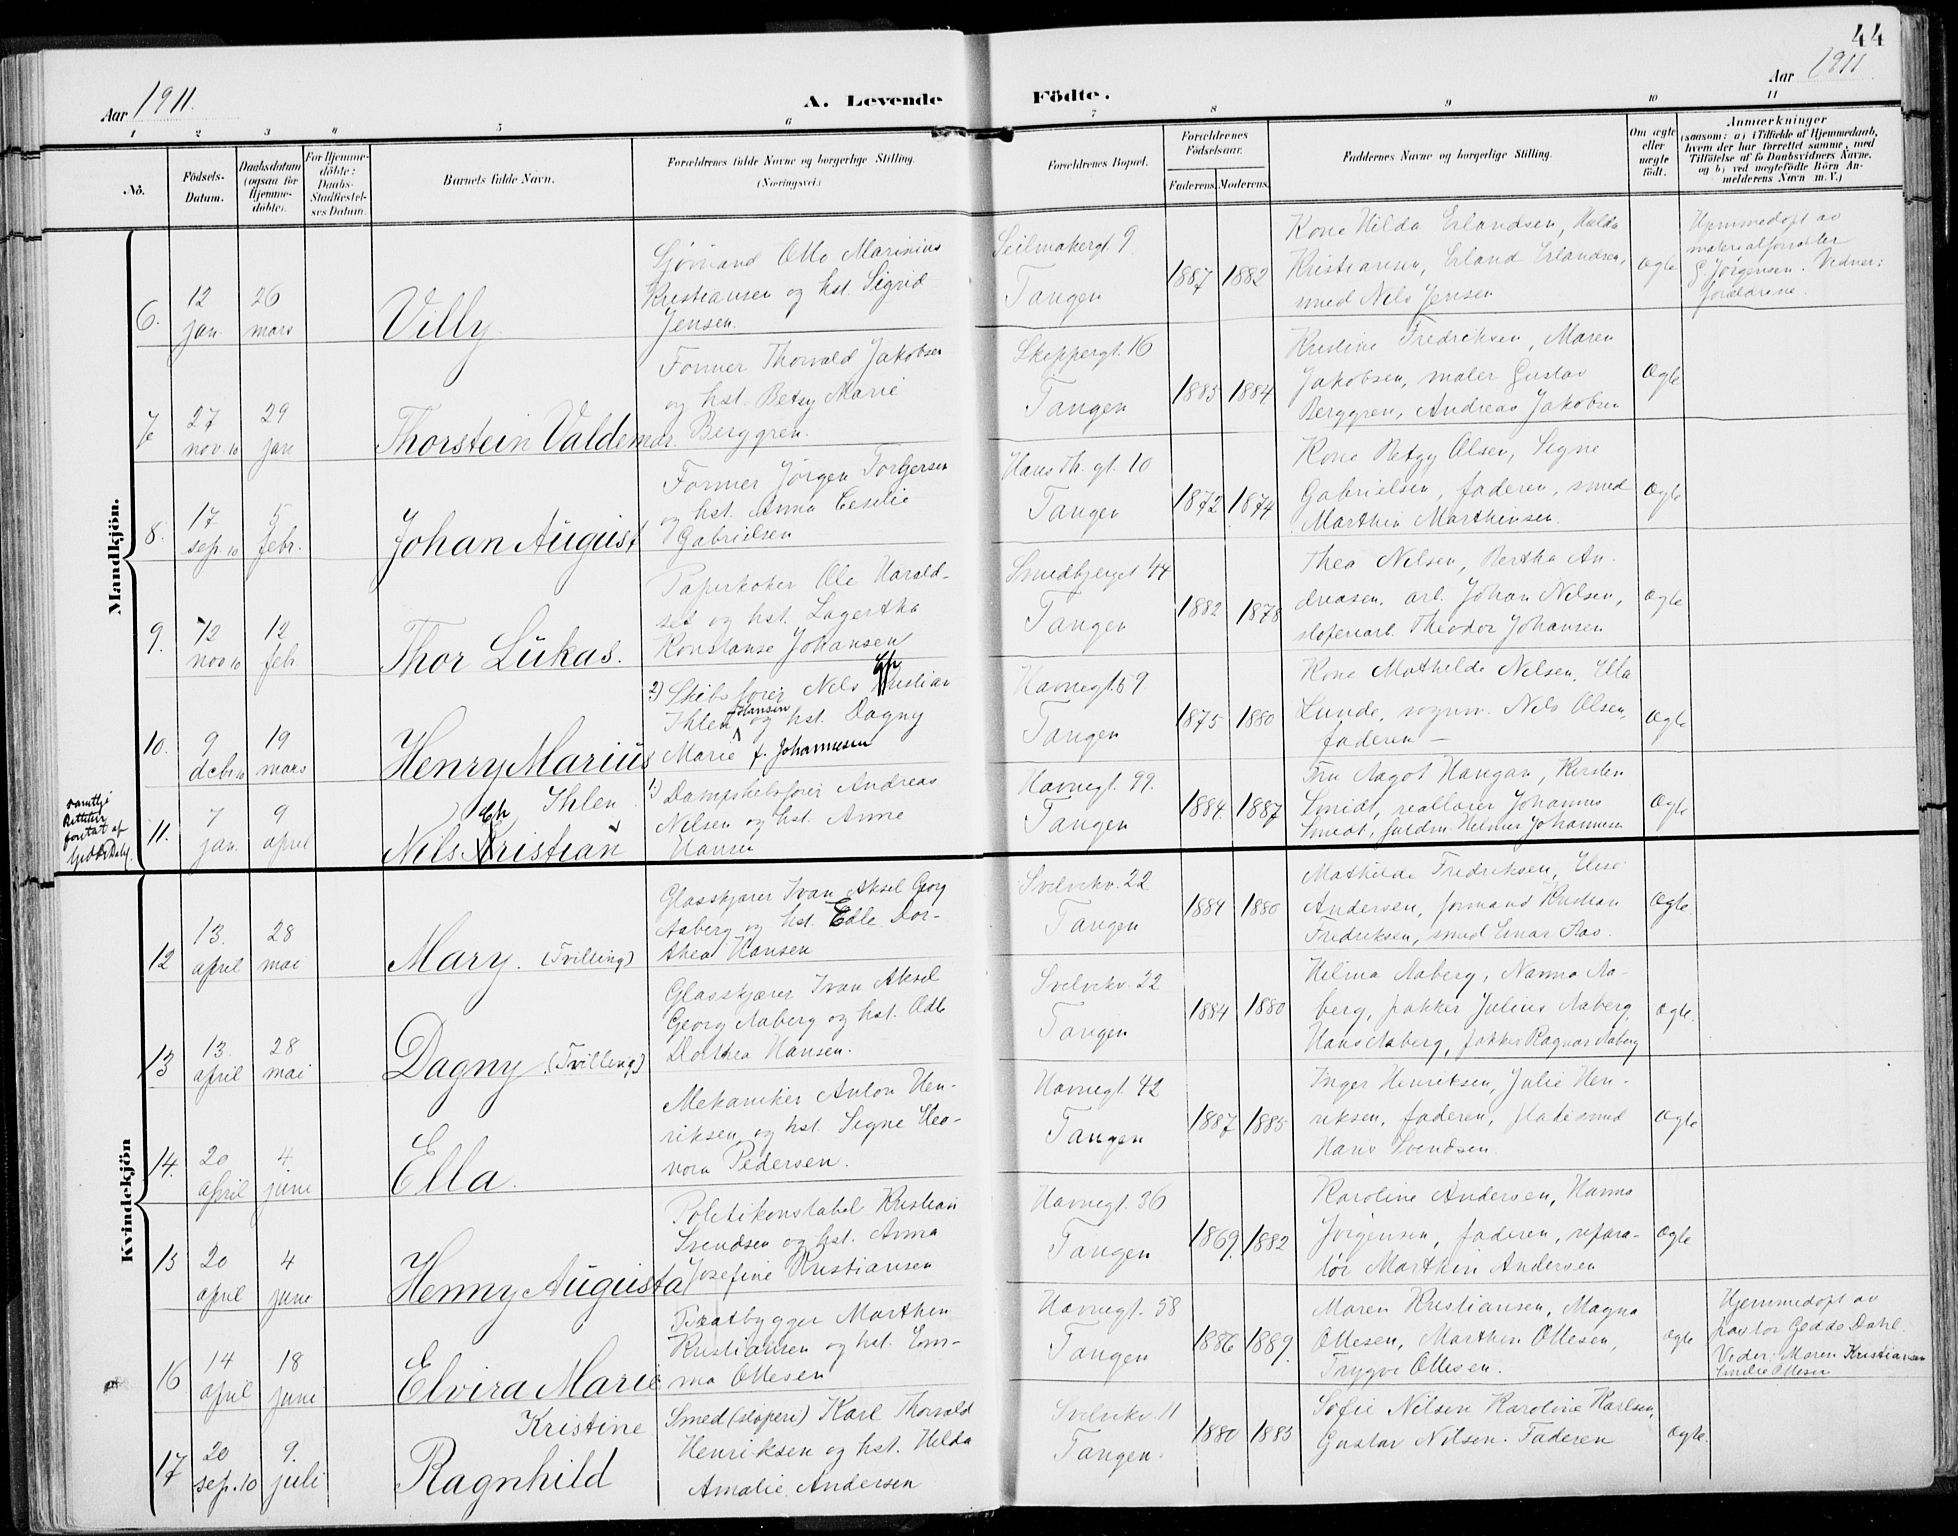 44
Aar 1911.
A. Levende Födte.
Aar 1911
1 2 3 4 5 6 7 8 9 10 11
Nô.
Födsels-Datum.
Daabsdatum (ogsaa for Hjemme-döbte).
For Hjemme-döbte: Daabs-Stadfæstel-ses Datum.
Barnets fulde Navn.
Forældrenes fulde Navne og borgerlige Stilling. (Næringsvei.)
Forældrenes Bopæl.
Forældrenes Födselsaar.
Faderens. Moderens.
Faddernes Navne og borgerlige Stilling.
Om ægte eller uegte födt.
Anmærkninger
(saasom: a) i Tilfælde af Hjemmedaab, hvem der har forrettet samme, med Tilföielse af to Daabsvidners Navne, og b) ved uegtefödte Börn An-melderens Navn m. V.)
Mandkjön.
6. 12 jan. 26 mars Villy
Sjømand Otto Marinius
Kristiansen og hst. Sigrid
Jensen.
Seilmakergt. 9
Tangen
1887 1882
Kone Hilda Erlandsen, Hulda
Kristiansen, Erland Erlandsen,
smed Nils Jensen
Ægte
Hjemmedøpt av
materialforvalter
G. Jørgensen. Vidner:
forældrene.
7. 27 nov 10 29 jan Thorstein Valdemar.
Former Thorvald Jakobsen
og hst. Betsy Marie
Berggren.
Skippergt. 16
Tangen
1883 1884
Kristine Fredriksen, Maren
Jakobsen, maler Gustav
Berggren, Andreas Jakobsen
Ægte
8. 17 sep. 10 5 febr. Johan August
Former Jørgen Torgersen
og hst. Anna Cecilie
Gabrielsen
Hans Th. gt. 10
Tangen
1872 1874
Kone Betzy Olsen, Signe
Gabrielsen, faderen, smed
Marthin Marthinsen.
Ægte
9. 12 nov 10 12 feb Thor Lukas.
Papirkoker Ole Harald-
set og hst. Lagertha
Konstanse Johansen
Smedbjerget 44
Tangen
1882 1878
Thea Nilsen, Bertha An-
dreasen. arb. Johan Nilsen,
sliperiarb. Theodor Johansen
Ægte
10. 9 debr 10 19 mars Henry Marius
2) Skibsfører Nils Christian
Ihlen Hansen og hst. Dagny
Marie f. Johannesen
Havnegt. 59
Tangen
1875 1880
Kone Mathilde Nilsen, Ella
Lunde, Nils Olsen,
faderen —
Ægte
11. 7 jan. 9 april Nils Christian Ihlen
1) Dampskibsfører Andreas
Nilsen og hst. Anne
Hansen
Havnegt. 99.
Tangen
1884. 1887
Fru Aagot Haugan, Kirsten
Smidt, reallærer Johannes
Smidt, Hilmer Johannesen
Ægte
Kvindekjön
12 13. april 28 mai Mary. (Tvilling)
Glasskjærer Ivan Aksel Georg
Aaberg og hst. Edle Dor-
thea Hansen
Svelvikv. 22
Tangen
1884 1880
Mathilde Fredriksen, Elise
Andersen, formand Kristian
Fredriksen, smed Einar Aas.
Ægte
13 13. april 28 mai Dagny (Tvilling)
Glasskjærer Ivan Aksel
Georg Aaberg og hst. Edle
Dorthea Hansen.
Svelvikv. 22
Tangen
1884 1880
Hilma Aaberg, Nanna Aa-
berg, pakker Julius Aaberg
Hans Aaberg, pakker Ragnar Aaberg
Ægte.
14. 20 april 4. juni Ella.
Mekaniker Anton Hen-
riksen og hst. Signe Eleo-
nora Pedersen.
Havnegt. 42
Tangen
1887 1885
Inger Henriksen, Julie Hen-
riksen, faderen, pladesmed
Hans Svendsen.
Ægte
15 20 april 4 juni Henny Augusta
Politikonstabel Kristian
Svendsen og hst. Anna
Josefine Kristiansen
Havnegt. 36
Tangen
1869. 1882
Karoline Andersen, Hanna
Jørgensen, faderen, repara-
tør Marthin Andersen
Ægte
16 14 april 18 juni Elvira Marie Kristine
Baatbygger Marthin
Kristiansen og hst. Em-
ma Ottesen
Havnegt. 58
Tangen
1886 1889.
Maren Kristiansen, Magna
Ottesen, Marthin Ottesen,
Trygve Ottesen.
Ægte
Hjemmedøpt av
pastor Gedde Dahl.
Vidner: Maren Kristiansen
Emilie Ottesen
17 20 sep. 10 9. juli Ragnhild
Smed (sliperi) Karl Thorvald
Henriksen og hst. Hilda
Amalie Andersen
Svelvikv. 11
Tangen.
1880 1883
Sofie Nilsen Karoline Karlsen,
Gustav Nilsen. Faderen
Ægte.